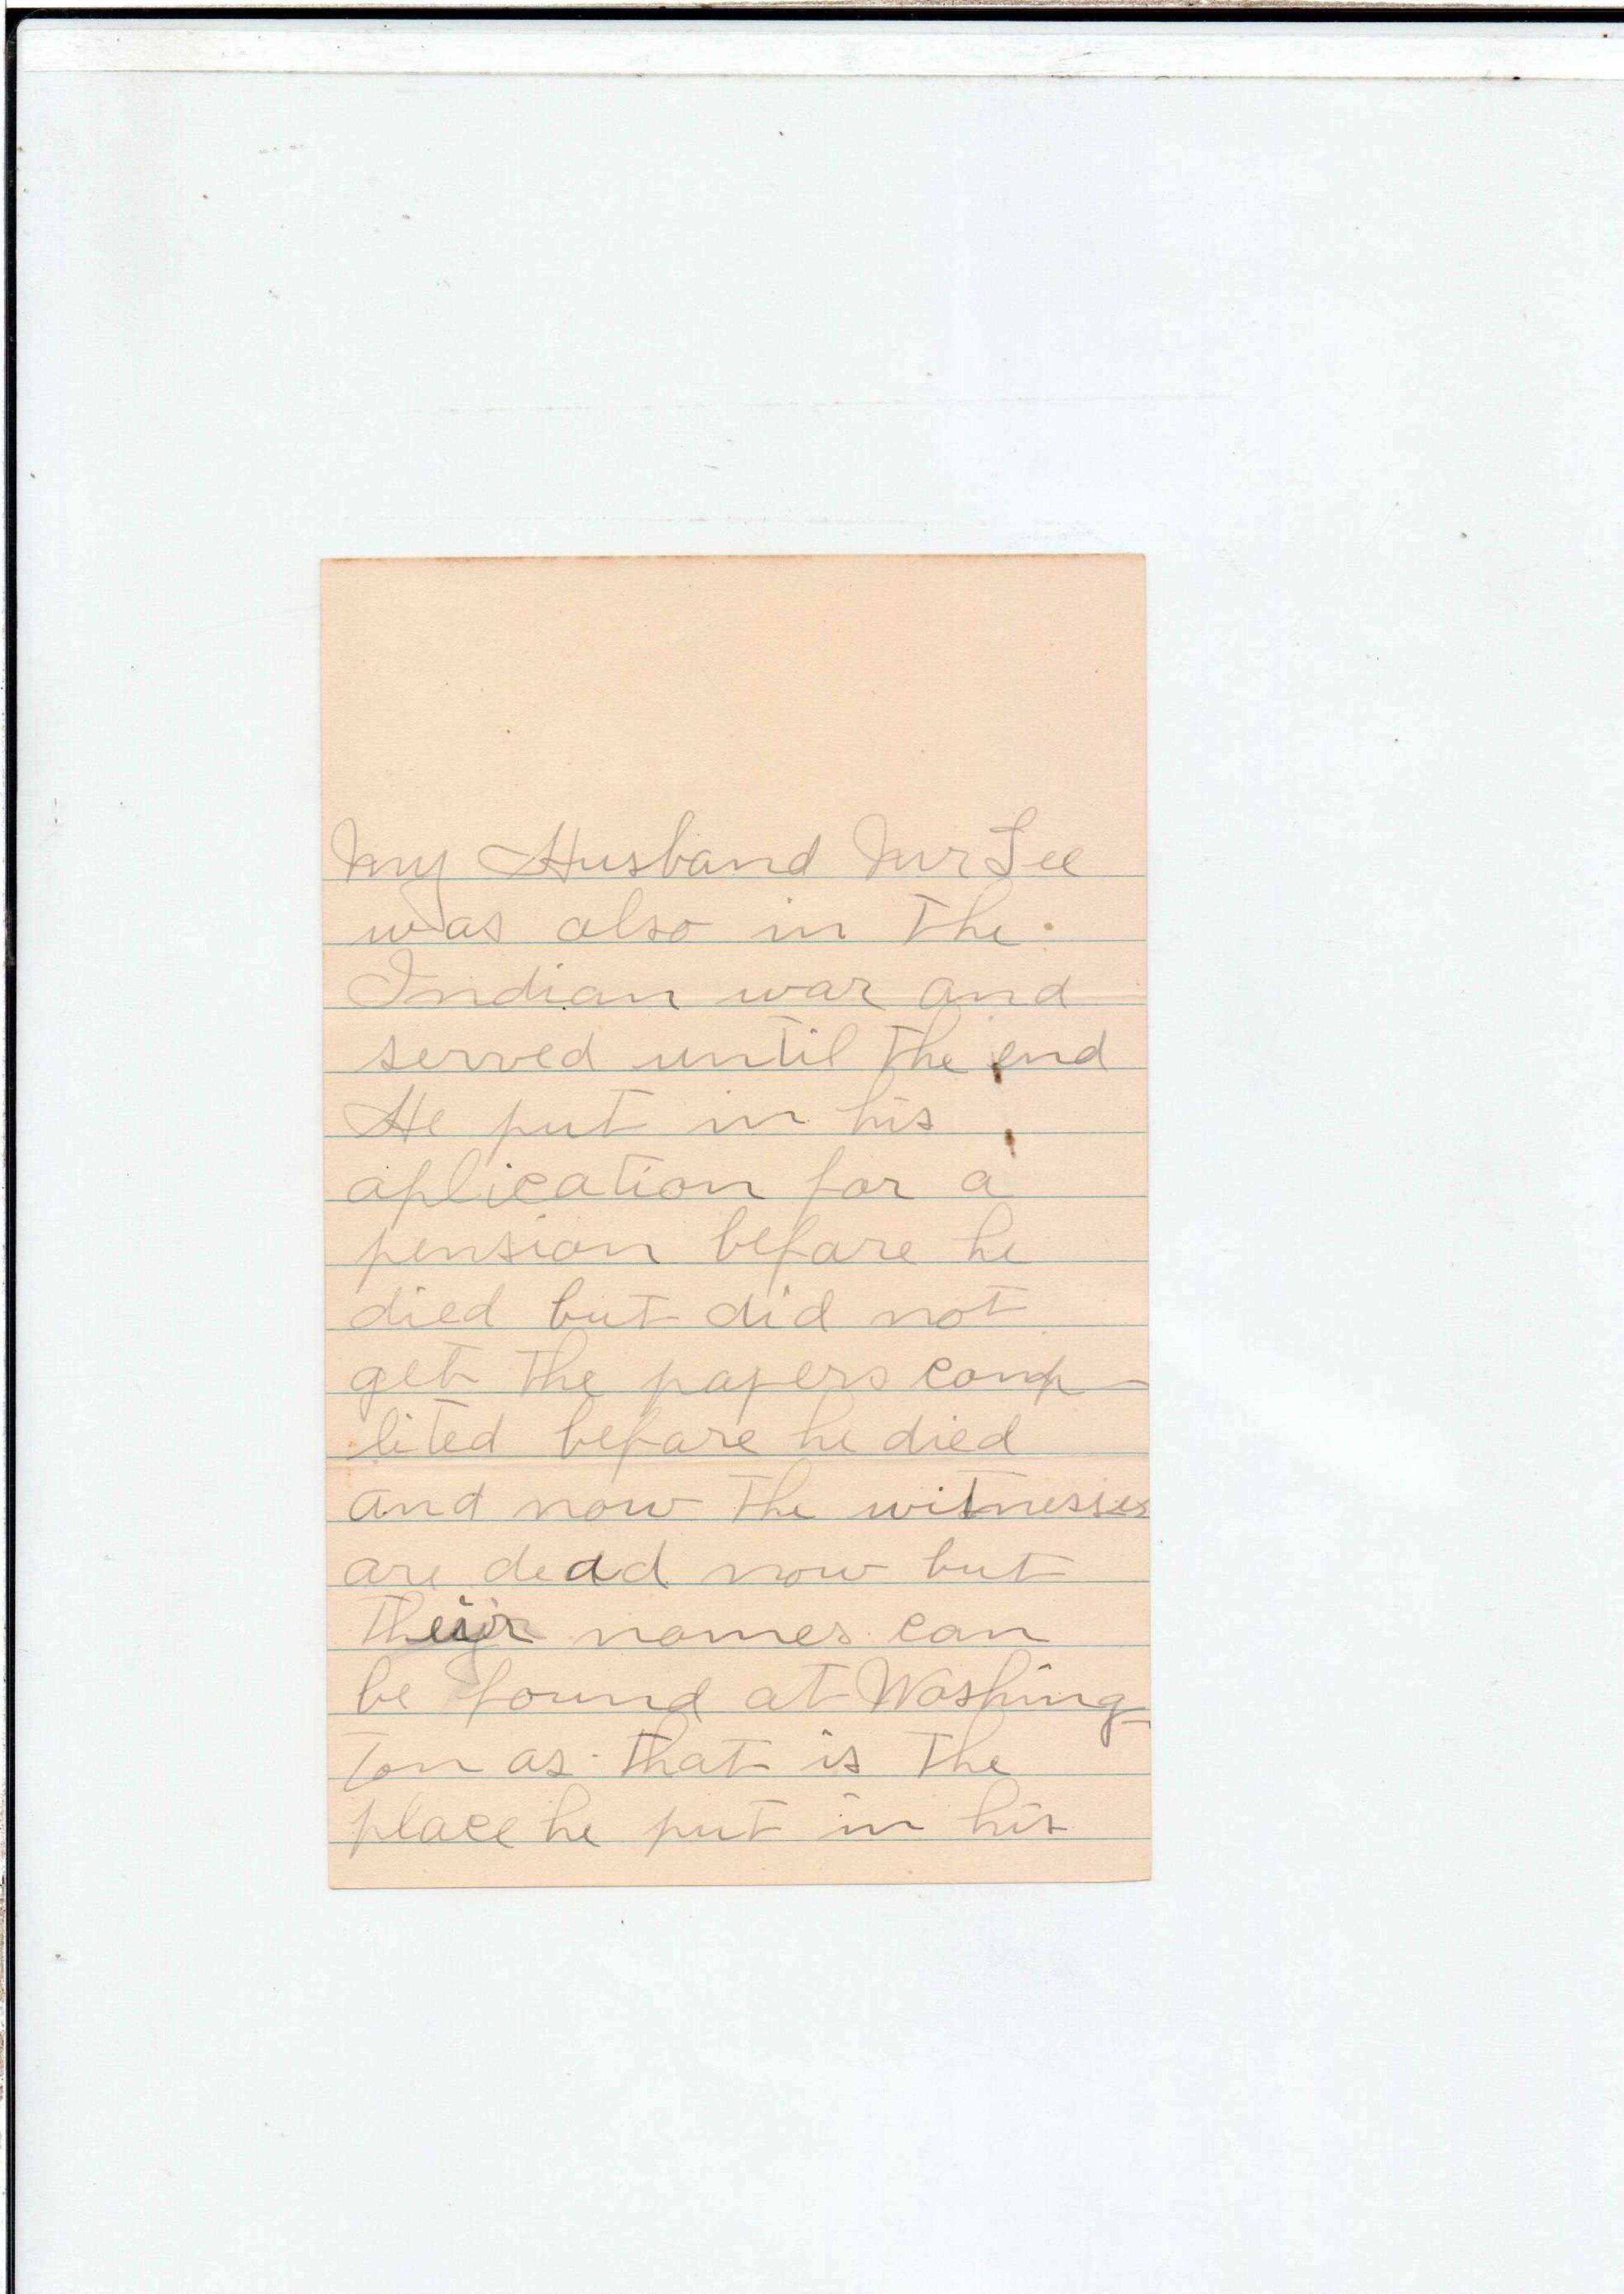 My Husband Mr Lee
was also in the
Indian war and
served until the end
He put in his
aplication for a
pension before he
died but did not
get the papers comp-
lited before he died
and now the witnesses
are dead now but
their names can
be found at Washing-
ton as that is the
place he put in his